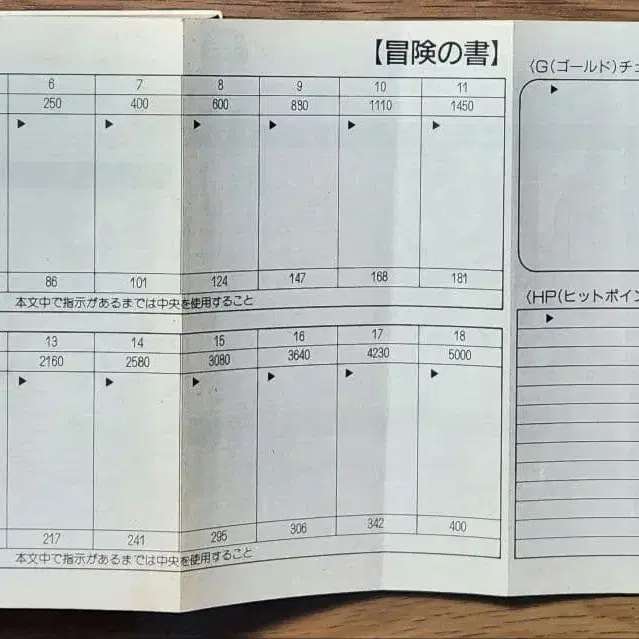 【冒険の書】
6 7 8 9 10 11
250 400 600 890 1110 1450
▶ ▶ ▶ ▶ ▶ ▶
86 101 124 147 168 181
本文中で指示があるまでは中央を使用すること
13 14 15 16 17 18
2160 2580 3080 3640 4230 5000
▶ ▶ ▶ ▶ ▶ ▶
217 241 295 306 342 400
本文中で指示があるまでは中央を使用すること
〈G(ゴールド)チェ
▶
〈HP(ヒットポイン
▶